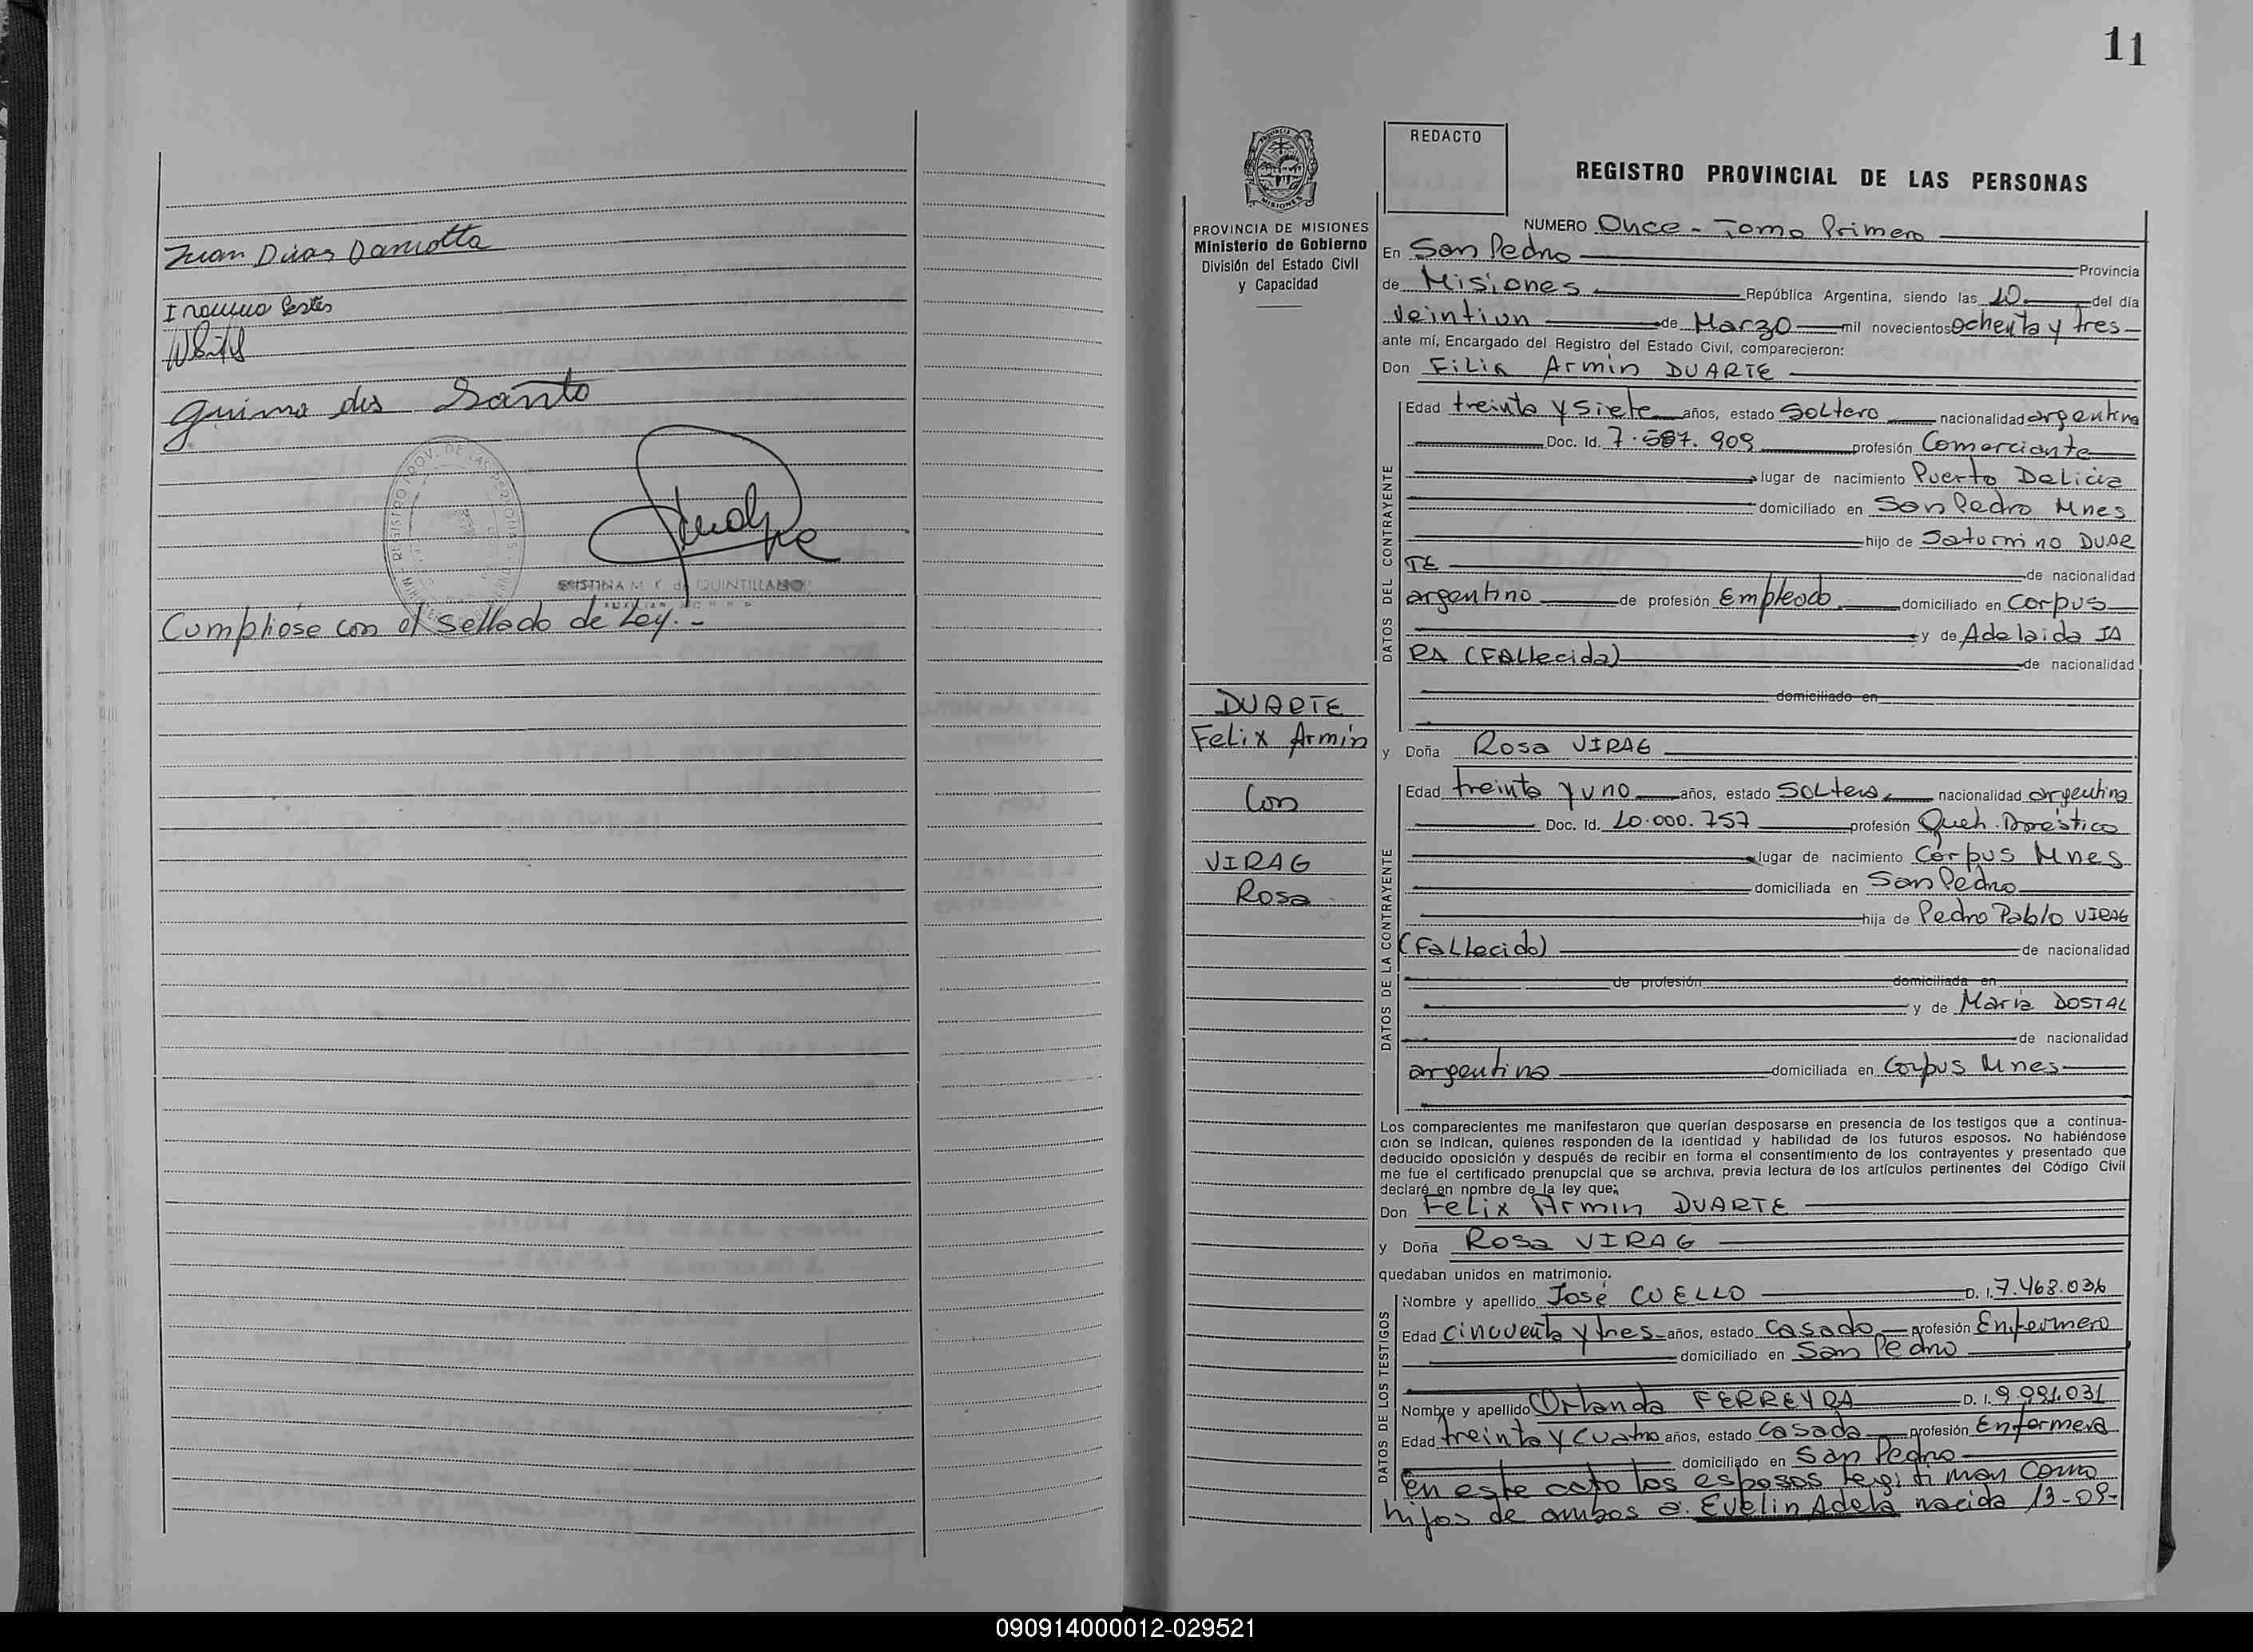 Juan Dias Damotta
Cumplióse con el sellado de Ley.-
11
REDACTO
REGISTRO PROVINCIAL DE LAS PERSONAS
PROVINCIA DE MISIONES
Ministerio de Gobierno
División del Estado Civil
y Capacidad
DUARTE
Felix Armin
Con
VIRAG
Rosa
NUMERO Once - Tomo Primero
En San Pedro Provincia
de Misiones República Argentina, siendo las 10 del día
veintiun de Marzo mil novecientos ochenta y tres
ante mí, Encargado del Registro del Estado Civil, comparecieron:
Don Armin DUARTE
DATOS DEL CONTRAYENTE
Edad treinta y siete años, estado Soltero nacionalidad argentina
Doc. Id. 7.587.909 profesión Comerciante
lugar de nacimiento Puerto Delicia
domiciliado en San Pedro Mnes
hijo de Saturnino DUAR
TE de nacionalidad
argentino de profesión Empleado domiciliado en Corpus
y de Adelaida JA
RA (Fallecida) de nacionalidad
domiciliado en
y Doña Rosa VIRAG
DATOS DE LA CONTRAYENTE
Edad treinta y uno años, estado Soltera nacionalidad argentina
Doc. Id. 10.000.757 profesión Queh. Doméstico
lugar de nacimiento Corpus Mnes
domiciliada en San Pedro
hija de Pedro Pablo VIRAG
(Fallecido) de nacionalidad
de profesión domiciliada en
y de María DOSTAL
de nacionalidad
argentina domiciliada en Corpus Mnes
Los comparecientes me manifestaron que querían desposarse en presencia de los testigos que a continua-
ción se indican, quienes responden de la identidad y habilidad de los futuros esposos. No habiéndose
deducido oposición y después de recibir en forma el consentimiento de los contrayentes y presentado que
me fue el certificado prenupcial que se archiva, previa lectura de los artículos pertinentes del Código Civil
declaré en nombre de la ley que:
Don Felix Armin DUARTE
y Doña Rosa VIRAG
quedaban unidos en matrimonio.
DATOS DE LOS TESTIGOS
Nombre y apellido José CUELLO D. I. 7.463.036
Edad cincuenta y tres años, estado Casado profesión Enfermero
domiciliado en San Pedro
Nombre y apellido Orlanda FERREYRA D. I. 9.991.031
Edad treinta y cuatro años, estado Casada profesión Enfermera
domiciliado en San Pedro
En este acto los esposos legitiman como
hijos de ambos a: Evelin Adela nacida 13-09-
090914000012-029521